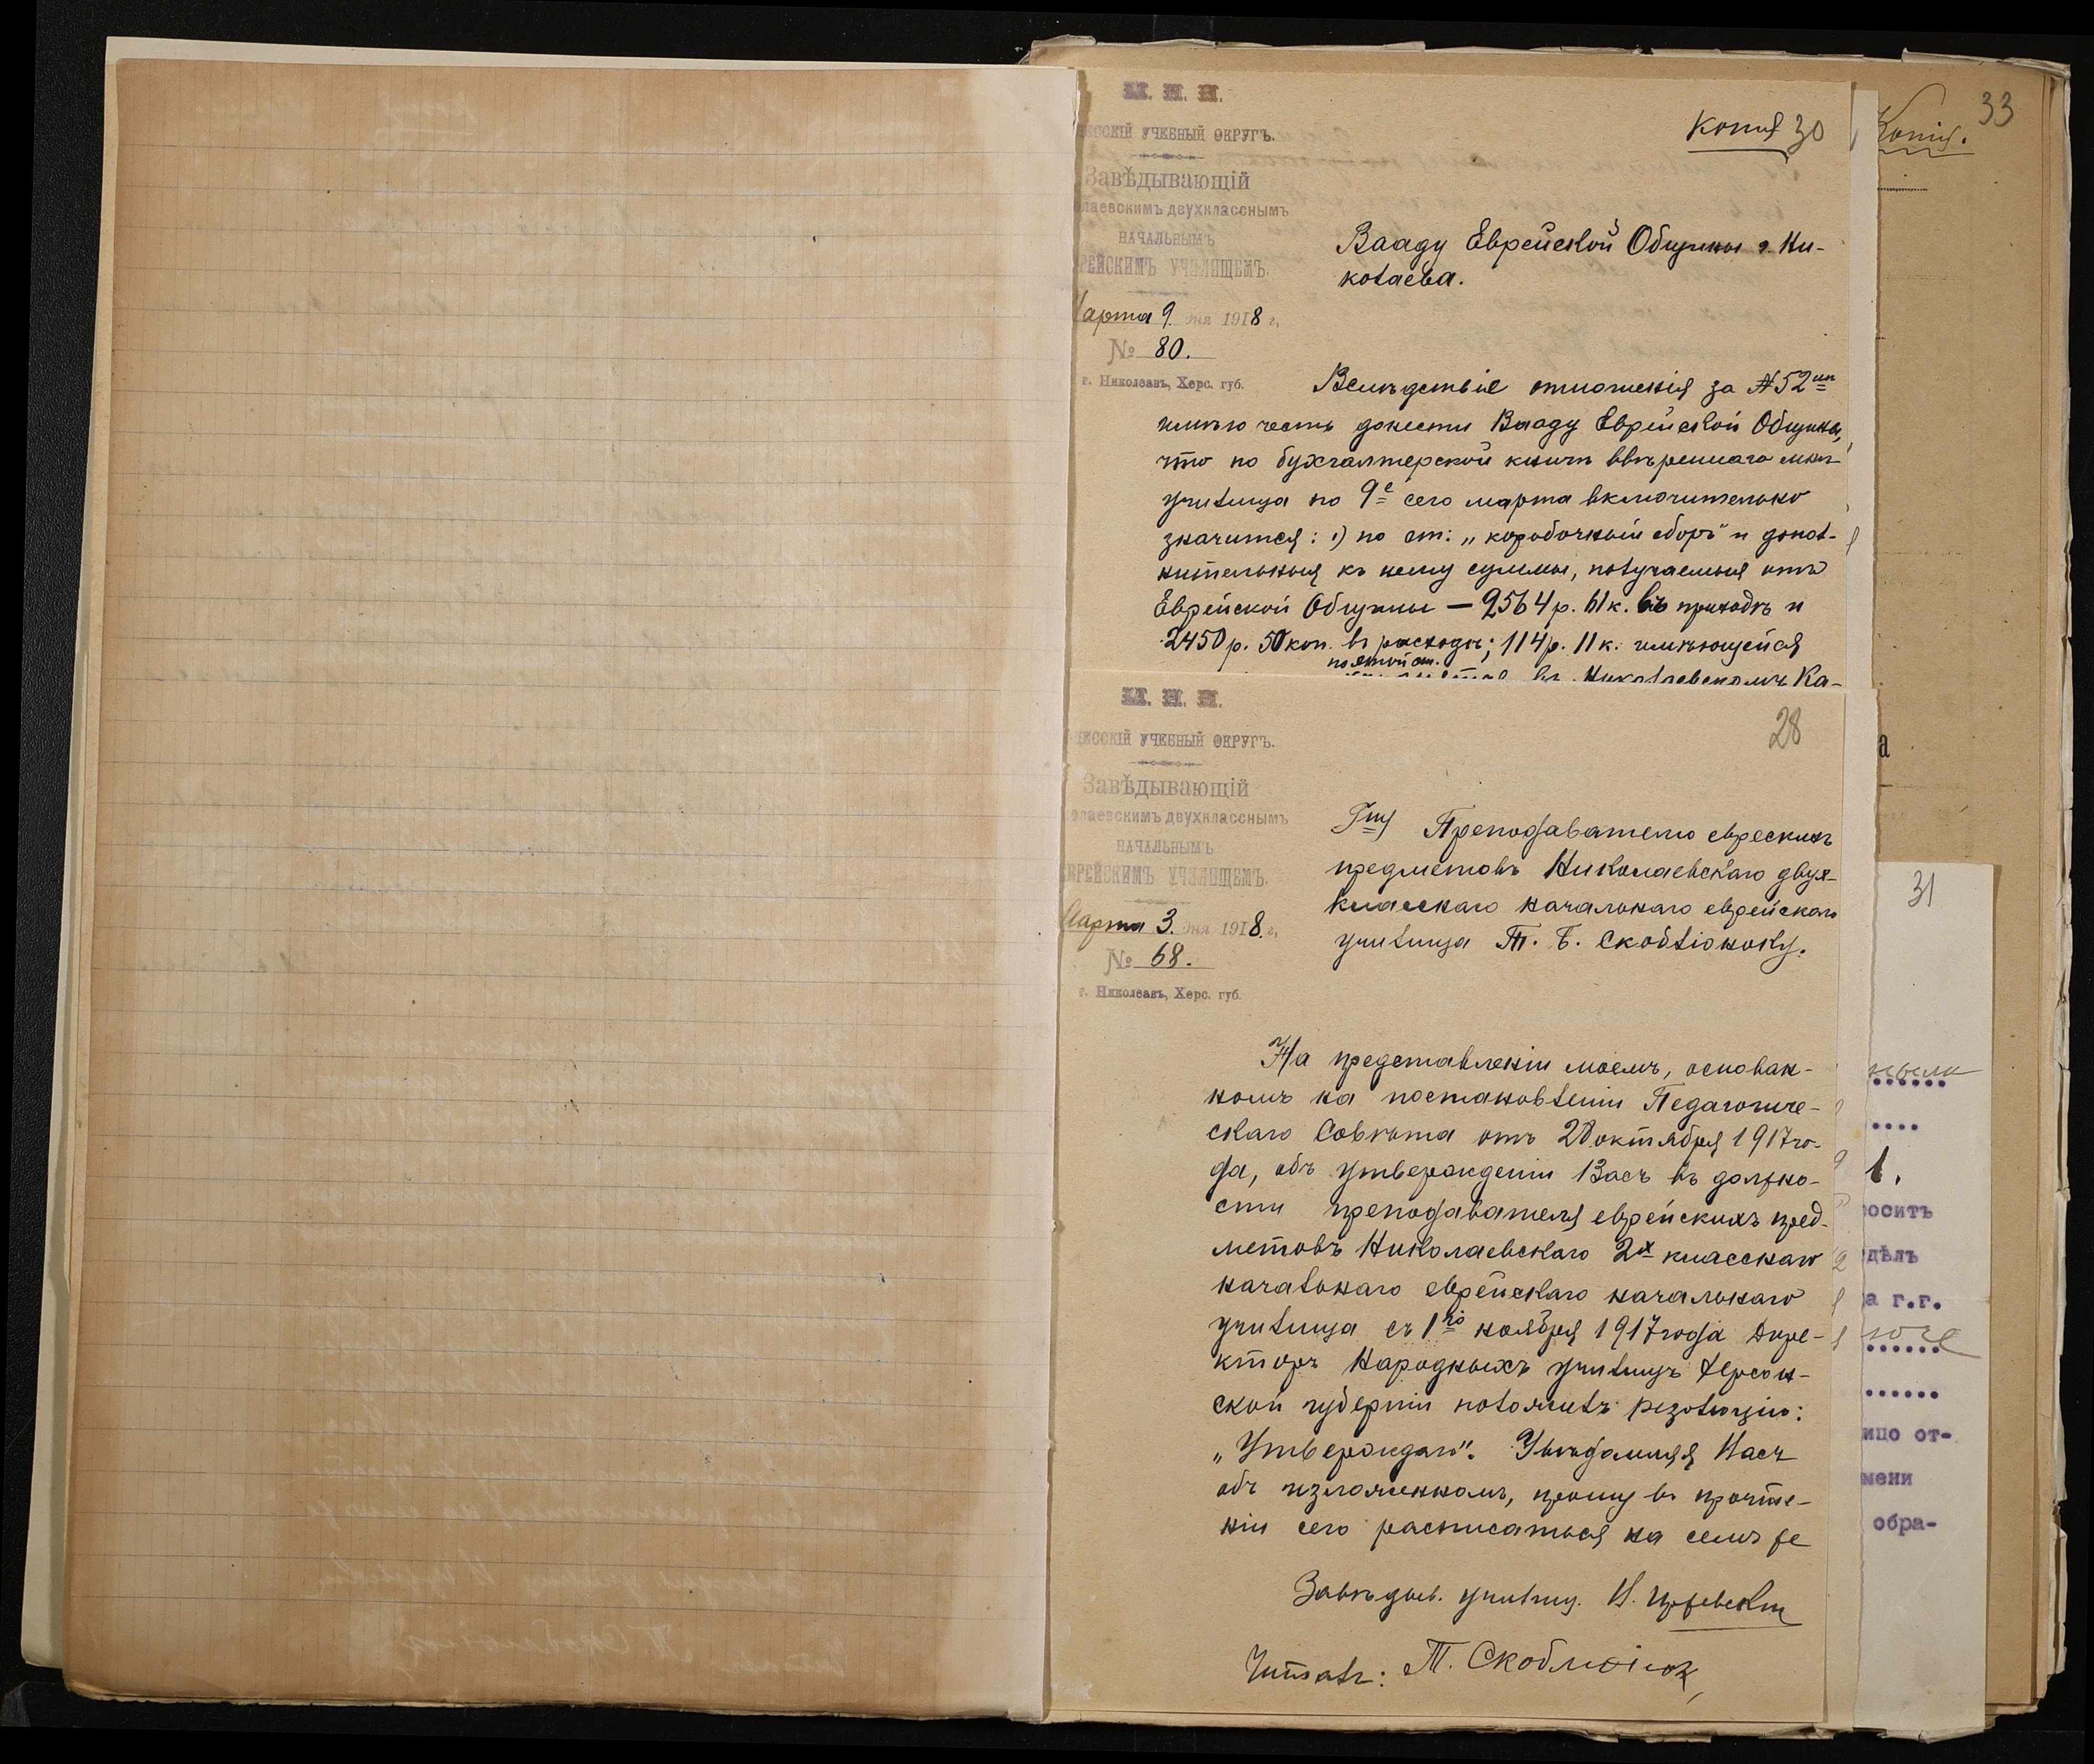 М. Н. П.
ЕССКІЙ УЧЕБНЫЙ ОКРУГЪ.
Завѣдывающій
лаевскимъ двухкласснымъ
НАЧАЛЬНЫМЪ
РЕЙСКИМЪ УЧИЛИЩЕМЪ.
арта 9. дня 1918 г.
№ 80.
г. Николаевъ, Херс. губ.
Копия 30
Вааду Еврейской Общины г. Ни-
колаева.
Вслѣдствіе отношенія за №52
имѣю честь донести Вааду Еврейской Общины,
что по бухгалтерской книгѣ ввѣреннаго мнѣ
училища по 9е сего марта включительно
значится: 1) по ст: „коробочный сборъ" и допол-
нительныя къ нему суммы, получаемыя отъ
Еврейской Общины — 2564 р. 61 к. въ приходѣ и
2450 р. 50 коп. въ расходѣ; 114 р. 11 к. имѣющейся
по этой ст.
въ Николаевскомъ Ка-
М. Н. П.
ДЕССКІЙ УЧЕБНЫЙ ОКРУГЪ.
Завѣдывающій
олаевскимъ двухкласснымъ
НАЧАЛЬНЫМЪ
ВРЕЙСКИМЪ УЧИЛИЩЕМЪ.
Марта 3. дня 1918 г.
№ 68.
г. Николаевъ, Херс. губ.
28
Гну Преподавателю еврескихъ
предметовъ Николаевскаго двух-
класснаго начальнаго еврейскаго
училища Т. Б. Скобліонокy.
На представленіи моемъ, основан-
номъ на постановленіи Педагогиче-
скаго Совѣта отъ 28 октября 1917 го-
да, объ утвержденіи Васъ въ должно-
сти преподавателя еврейскихъ пред-
метовъ Николаевскаго 2х класснаго
начальнаго еврейскаго начальнаго
училища съ 1го ноября 1917 года Дире-
кторъ Народныхъ училищъ Херсон-
ской губерніи положилъ резолюцію:
„Утверждаю". Увѣдомляя Васъ
объ изложенномъ, прошу въ прочте-
ніи сего расписаться на семъ же
Завѣдыв. училищ.
Читалъ: Т. Скобліонок
Копія.
33
а
31
1.
осить
дѣлъ
а г.г.
ицо от-
мени
обра-